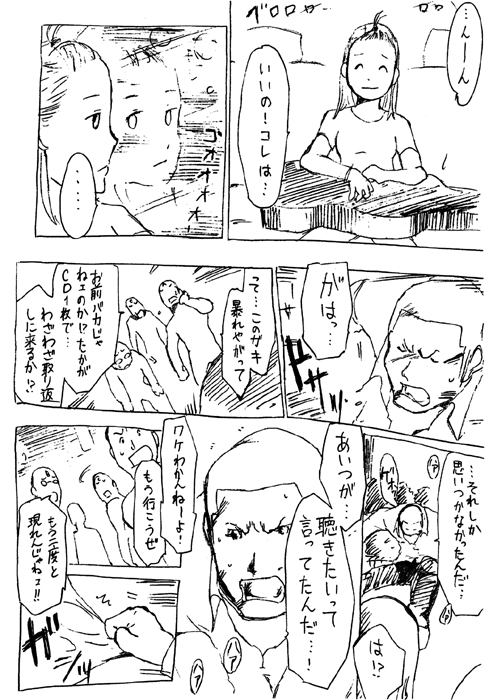 ゴロロロ…
…んーん
いいの！コレは…
ゴオオオオオ
……
がはっ…
ドサッ
って…このガキ
暴れやがって
お前バカじゃ
ねェのか!?たかが
CD1枚で…
わざわざ取り返
しに来るか!?
…それしか
思いつかなかったんだ…
は!?
あいつが…
聴きたいって
言ってたんだ…！
ワケわかんねーよ！
もう行こうぜ
もう二度と
現れんじゃねェ!!
ガッ